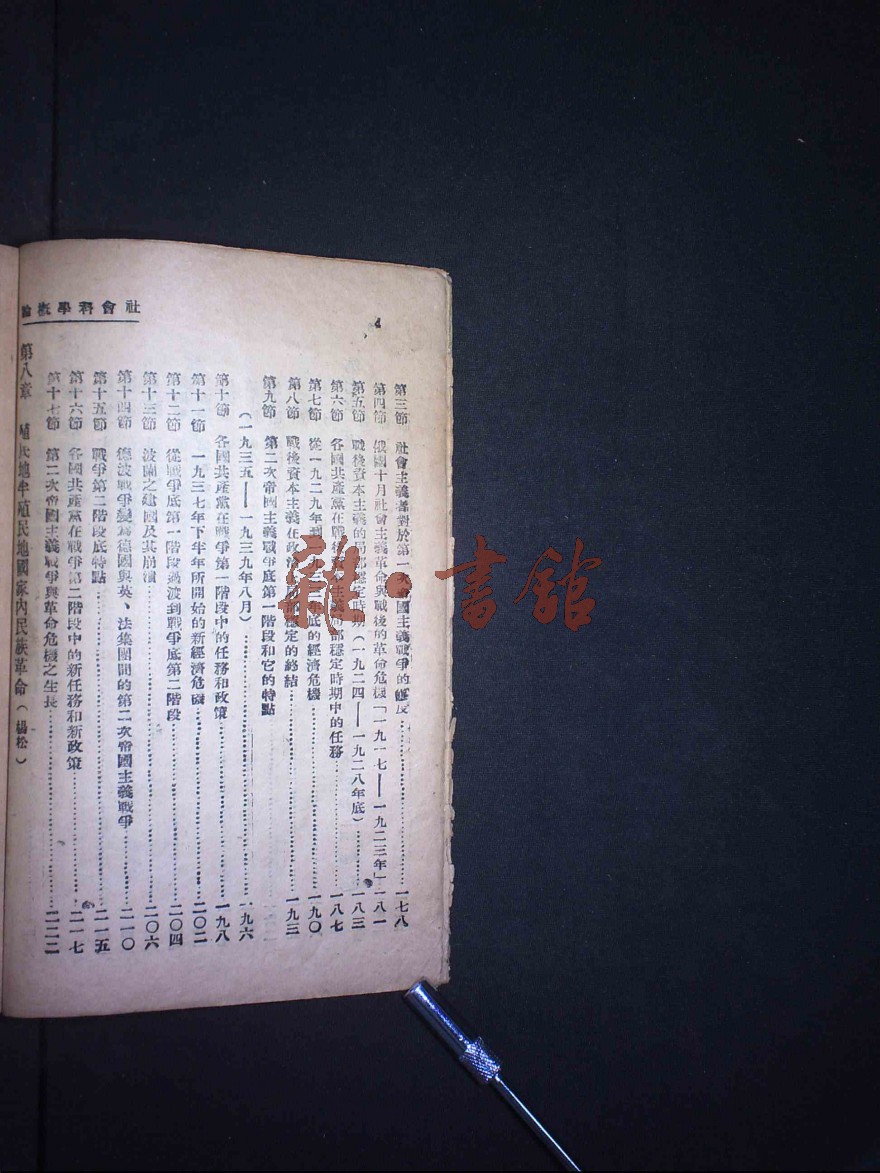 社會科學概論
第三節　社會主義者對於第一次帝國主義戰爭的態度……一七八
第四節　俄國十月社會主義革命與戰後的革命危機「一九一七——一九二三年」一八一
第五節　戰後資本主義的局部穩定時期（一九二四——一九二八年底）……一八三
第六節　各國共產黨在戰後資本主義局部穩定時期中的任務……一八七
第七節　從一九二九年到一九三三年底的經濟危機……一九〇
第八節　戰後資本主義在政治局部穩定的終結……一九三
第九節　第二次帝國主義戰爭底第一階段和它的特點
（一九三五——一九三九年八月）……一九六
第十節　各國共產黨在戰爭第一階段中的任務和政策……一九八
第十一節　一九三七年下半年所開始的新經濟危機……二〇二
第十二節　從戰爭底第一階段過渡到戰爭底第二階段……二〇四
第十三節　波蘭之建國及其崩潰……二〇六
第十四節　德波戰爭變爲德國與英、法集團間的第二次帝國主義戰爭……二一〇
第十五節　戰爭第二階段底特點……二一五
第十六節　各國共產黨在戰爭第二階段中的新任務和新政策……二一七
第十七節　第二次帝國主義戰爭與革命危機之生長……二二二
第八章　殖民地半殖民地國家內民族革命（楊松）
雜·書館